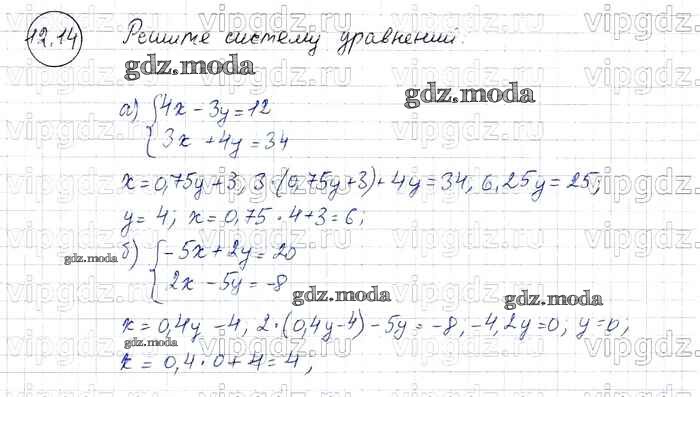 12.14 Решите систему уравнений.
gdz.moda
gdz.moda
а) {4x - 3y = 12
{3x + 4y = 34
x = 0,75y + 3, 3·(0,75y + 3) + 4y = 34, 6,25y = 25;
y = 4; x = 0,75 · 4 + 3 = 6;
gdz.moda
б) {-5x + 2y = 20
{2x - 5y = -8
gdz.moda
gdz.moda
x = 0,4y - 4, 2·(0,4y - 4) - 5y = -8, -4,2y = 0; y = 0;
gdz.moda
x = 0,4 · 0 + 4 = 4,
vipgdz.ru